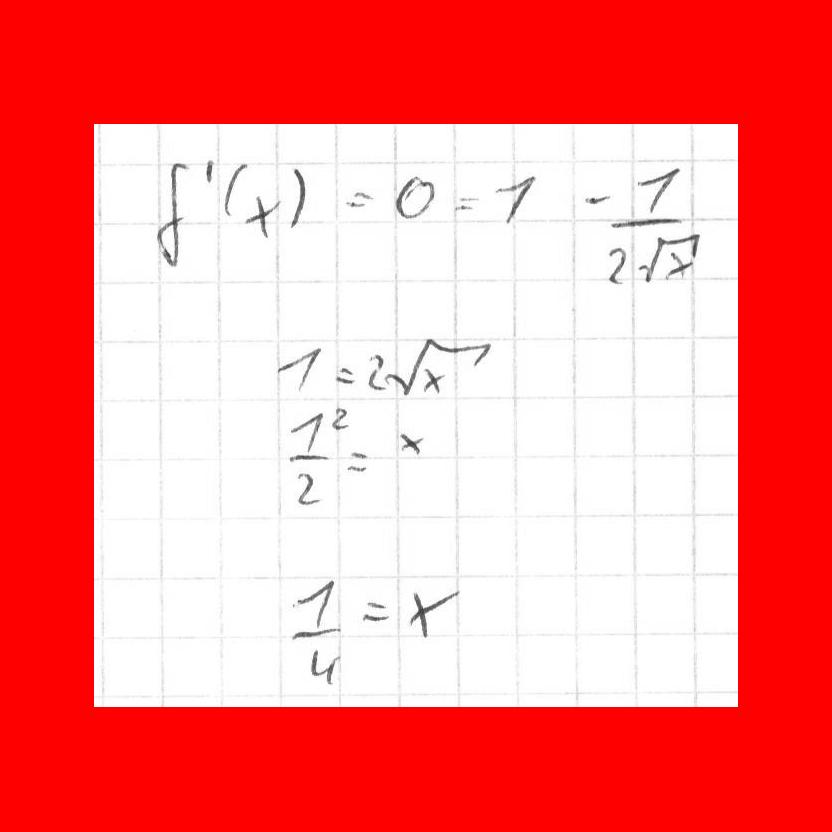 f'(x) = 0 = 1 - 1/(2√x)
1 = 2√x
1²/2 = x
1/4 = x